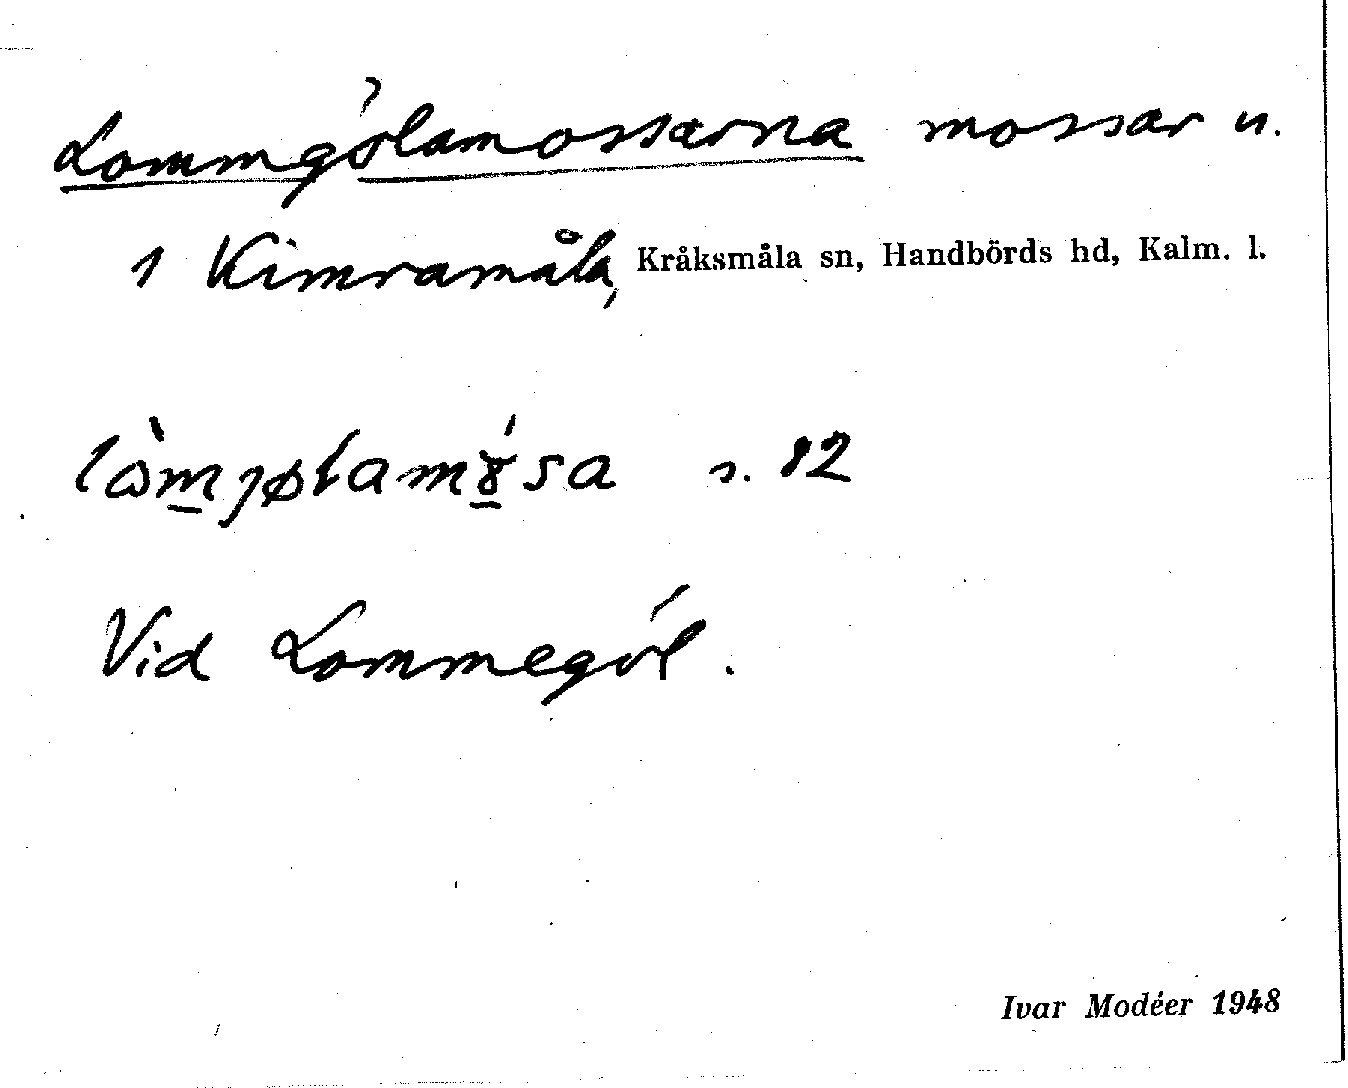 Lommgólamossarna mossar u.
1 Kimramåla, Kråksmåla sn, Handbörds hd, Kalm. l.
s. 82
Vid Lommegól.
Ivar Modéer 1948